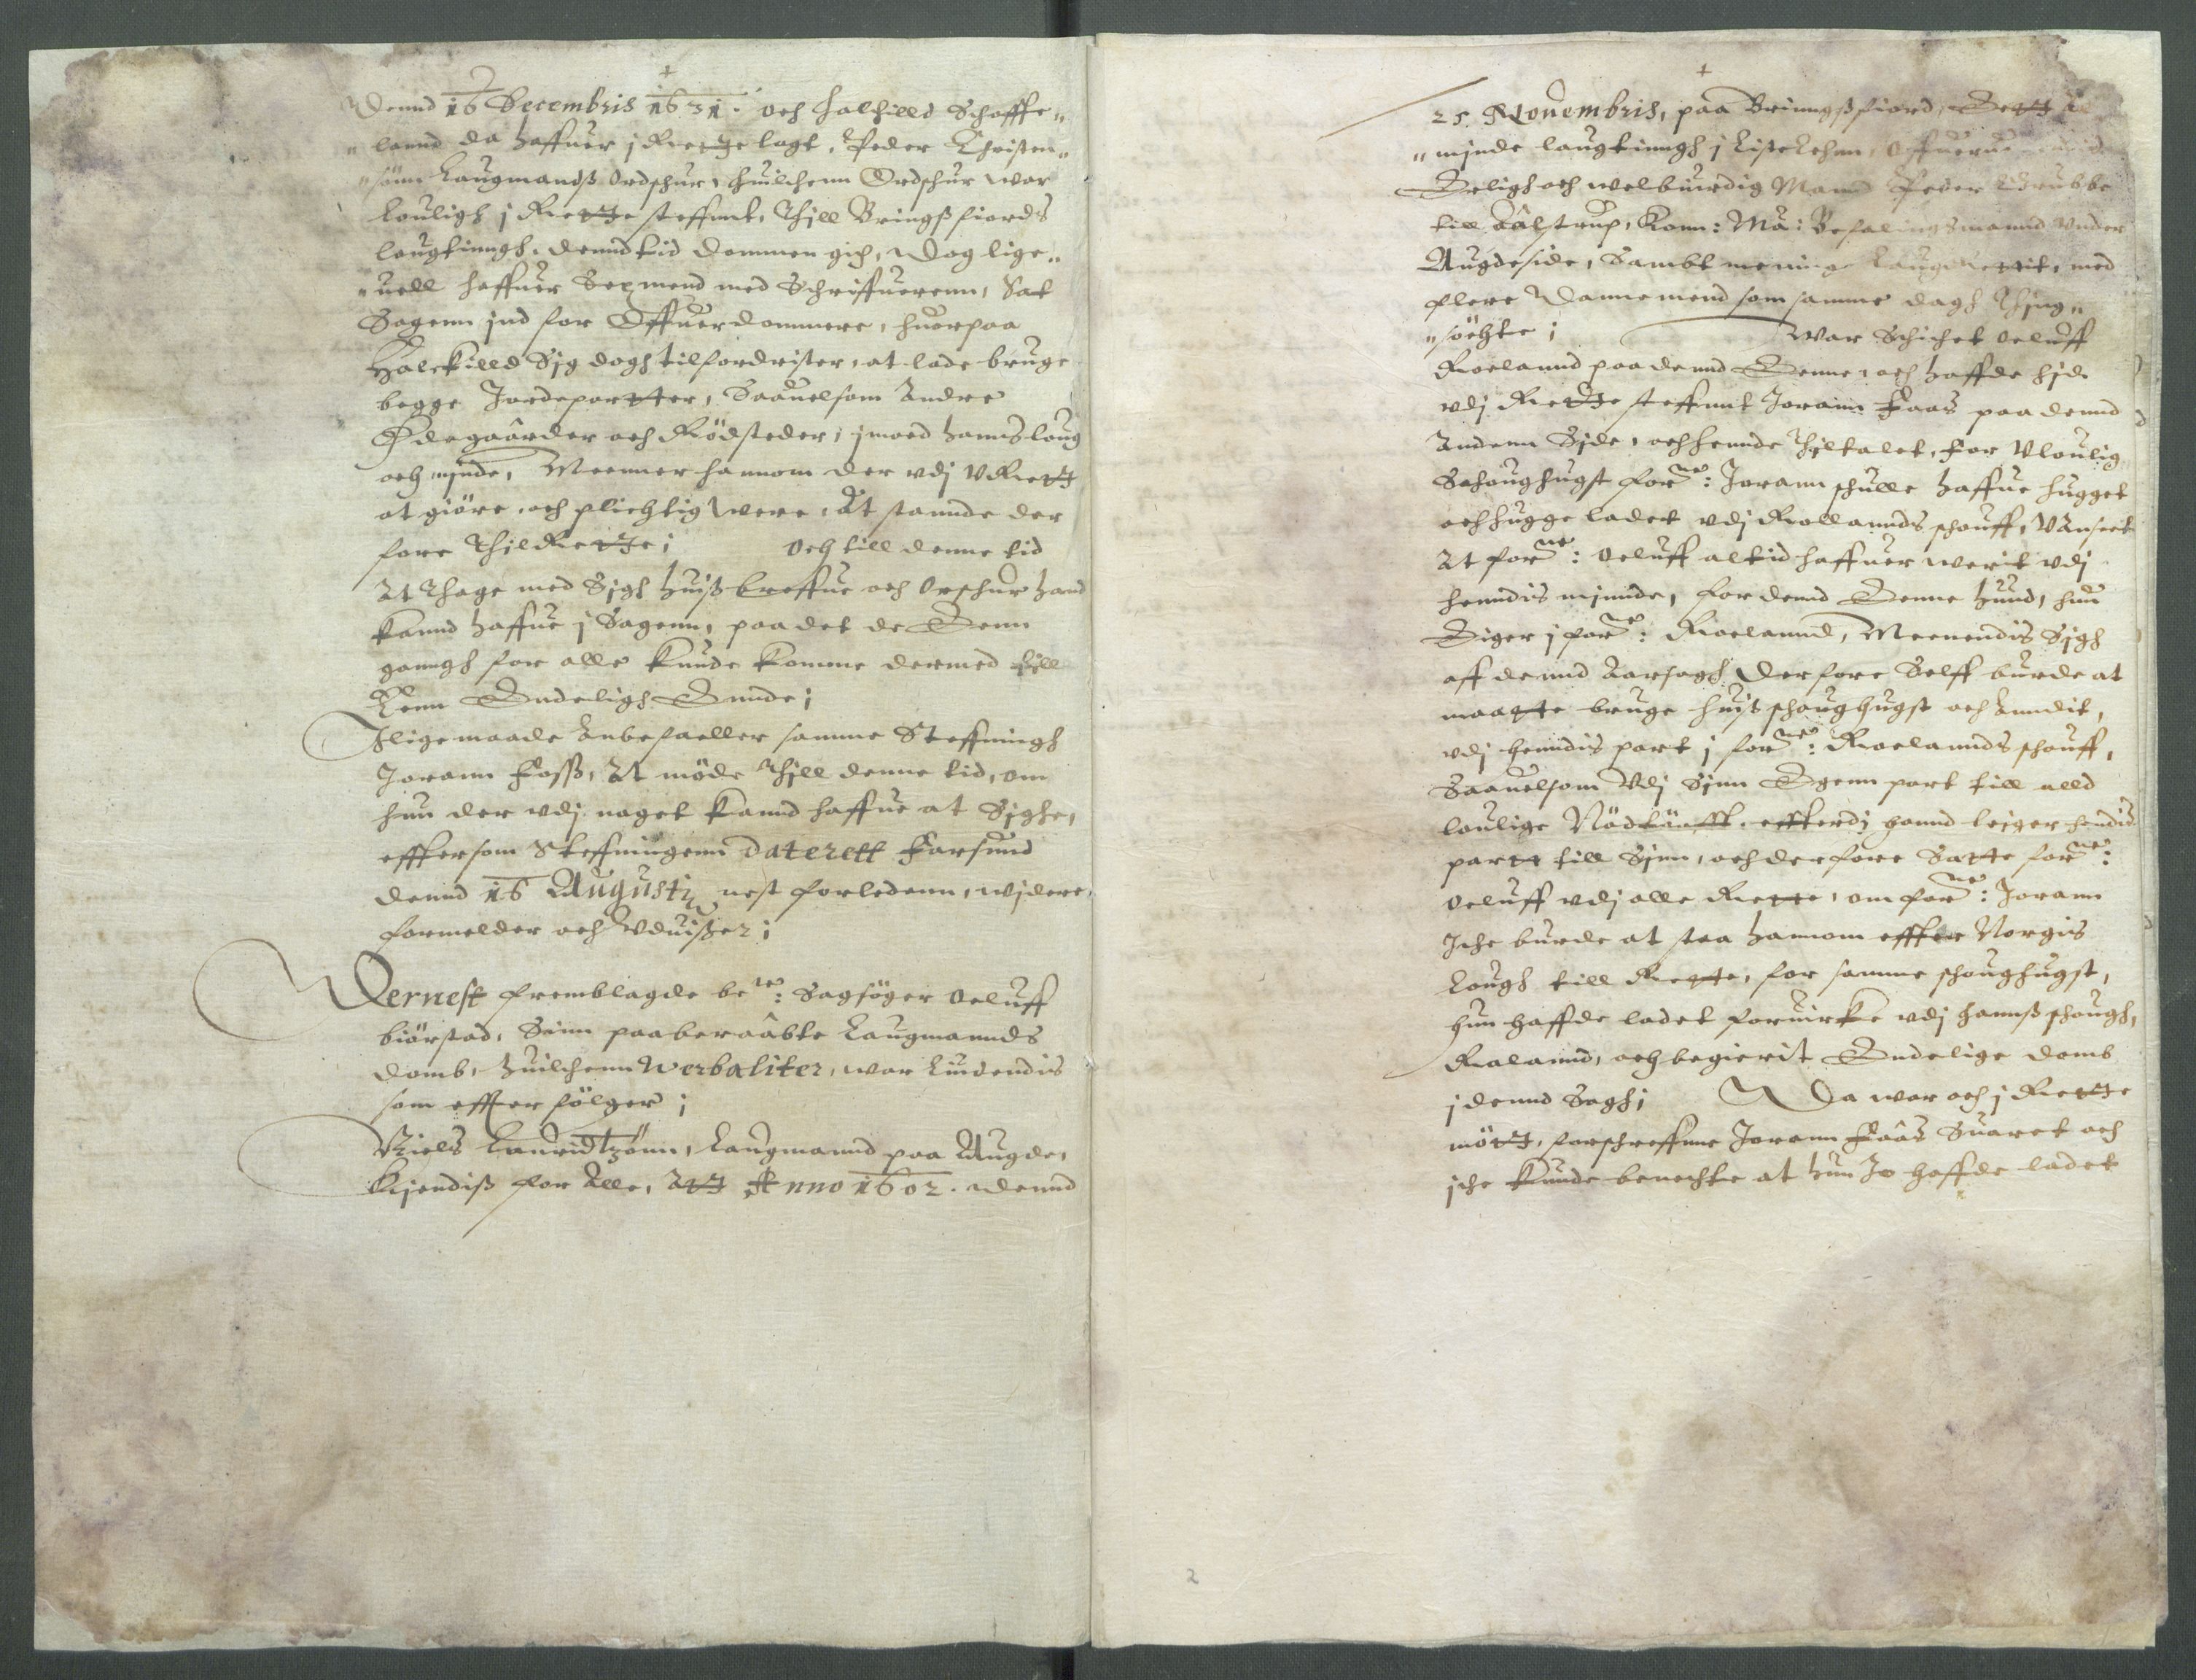 Dennd 16 Decembris 1631. och Halfilld Schaffe„
„lannd da haffuer j Rrette lagt, Peder Christen„
„sönn Laugmands Ordschur, huilchenn Ordschur war
louligh j Rrette steffnnt, Thill Bringsfiords
laugtinngh, dennd tid dommen gich, Dog lige„
„uell haffuer Sexmend med Schriffuerenn, Sat
Sagenn ind for Offuerdommere, huorpaa
Halckilld Sig dogh tilfordrister, at lade bruge
begge Jordeparter, Saauelsom Andre
Ødegaârder och Rödsteder, jmoed hanns loug
och minde, Meenner hannom der vdj VRett
at giöre, och plichtig were, At stannde der
fore Thil Rrette; Och till denne tid
At Thage med Sigh huiß breffue och Orschur hand
kannd haffue j Sagenn, paa det de Eenn
ganngh for alle kunde komme dermed till
Eenn Endeligh Ennde;
Jligemaade Anbefaeller samme Steffningh
Jorann Foss, At möde Thill denne tid, om
hun der vdj noget kannd haffue at Sighe,
effter som Steffningenn Daterett Farsund
dennd 16 Augustj nest forledenn, widere
formelder och Vduißer;
Dernest fremblagde be.te: Sagsöger Oeluff
biörstad, Sinn paaberaâbte Laugmannds
domb, huilchenn Werbaliter, war Liudendis
som effter fölger;
Niels Lauridtzönn, Laugmannd paa Augde,
Kiendiß for Alle, Att Anno 1602. Dennd
25. Nouembris, paa Bringsfiord, Rett
„minde laugtinngh j Listelehnn, Offueruerende
Erligh och welbiurdig Mannd Peder Grubbe
till Aâlstrup, Konn: Ma: Befalingsmannd vnder
Augdeside, Sambt menige Laugrettit, med
flere Dannemend som samme dagh Thing„
„söchte; War Schichet Oeluff
Roelannd paa dennd Eenne, och haffde hid
vdj Rette steffnnt Jorann Faas paa dennd
Andenn Side, och hennde Thiltalet, for Vlouligh
Schoughugst for.ne: Jorann schulle haffue hugget
och hugge ladet vdj Rollannds schouff, Vanseet
At for.ne: Oeluff altid haffuer werit vdj
henndis minnde, for dennd Eenne hund, hun
Eiger j for.ne: Roelannd, Meenendis Sigh
aff dennd Aarsagh derfore Selff burde at
maatte bruge huiß schoughugst och Anndit,
vdj henndis part j for.ne: Roelannds schouff,
Saauelsom Vdj Sinn Egenn part till alld
loulige Nödtürfft, effterdj hannd leiger hendis
partt till Sinn, och derfore Satte for.ne:
Oeluff vdj alle Rette, om for.ne: Jorann
Jche burde at staa hannom effter Norgis
Lough till Rette, for samme schoughugst,
hun haffde ladet foruirke vdj hannß schough,
Ralannd, och begierit Endelige domb
j dennd Sagh; Da war och j Rette
mött, forschreffnne Jorann Faâs Suaret och
jche kunde benechte at hun Jo haffde ladet
2